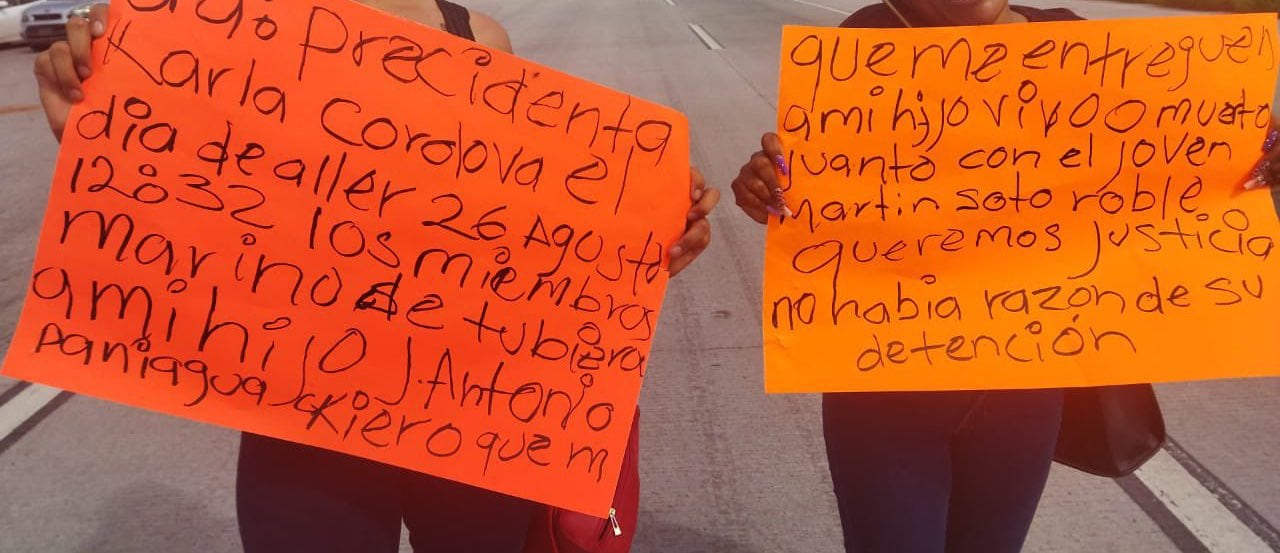 precidenta
Karla cordova el
dia de aller 26 Agosto
12:32 los miembros
marino de tubiera
a mi hijo J. Antonio
paniagua kiero que m
que me entreguen
a mi hijo vivo o muerto
juanto con el joven
martin soto roble
queremos justicia
no habia razón de su
detención